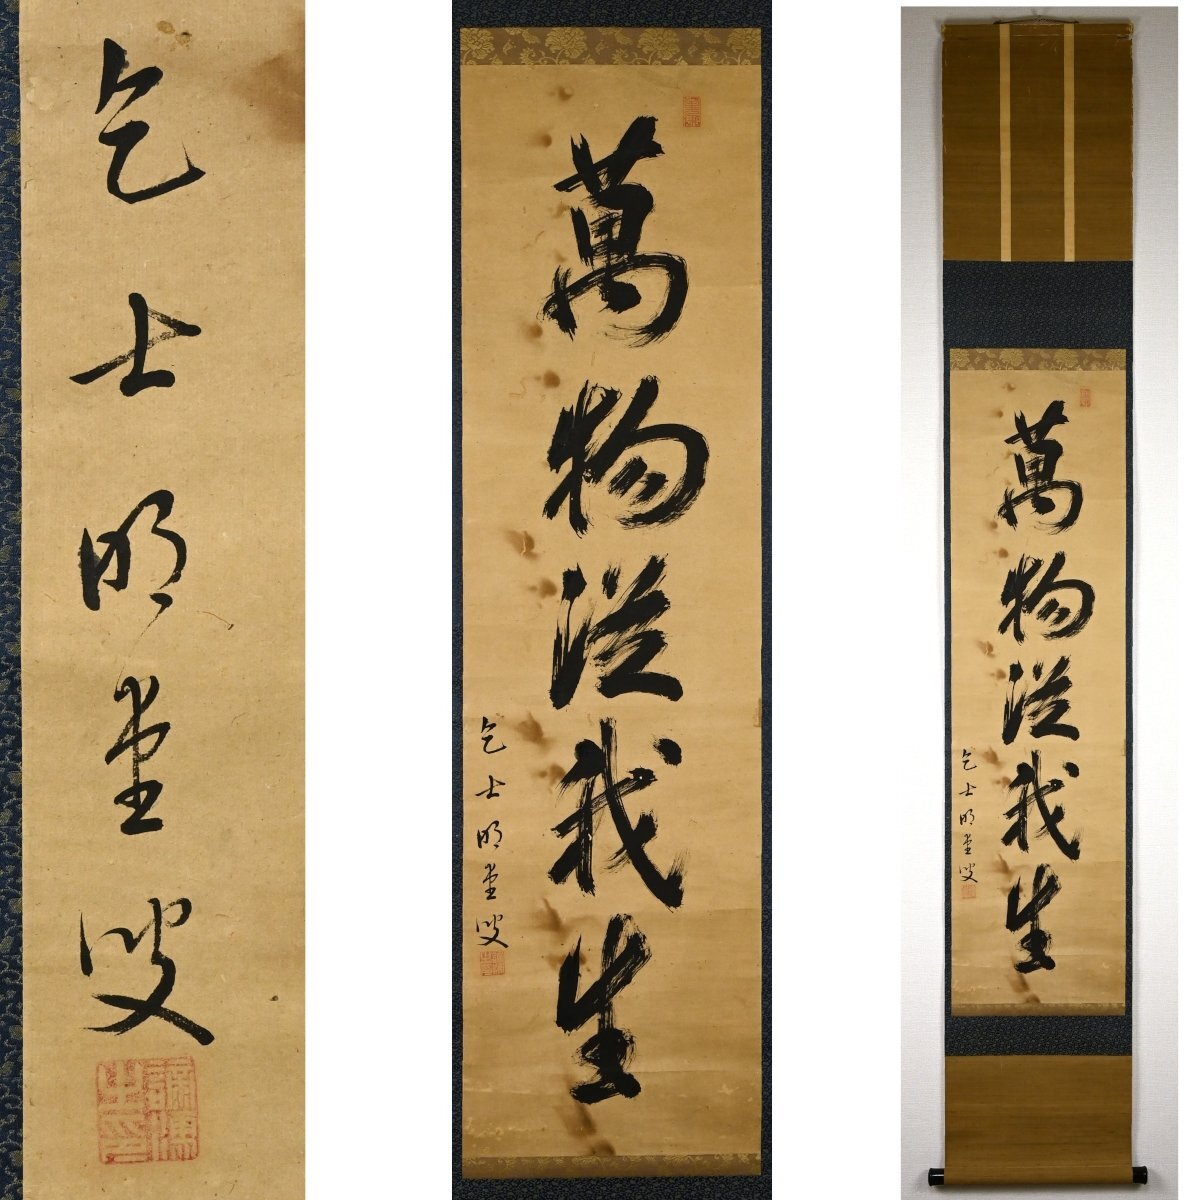 乞士明堂叟
萬物從我生
乞士明堂叟
萬物從我生
乞士明堂叟